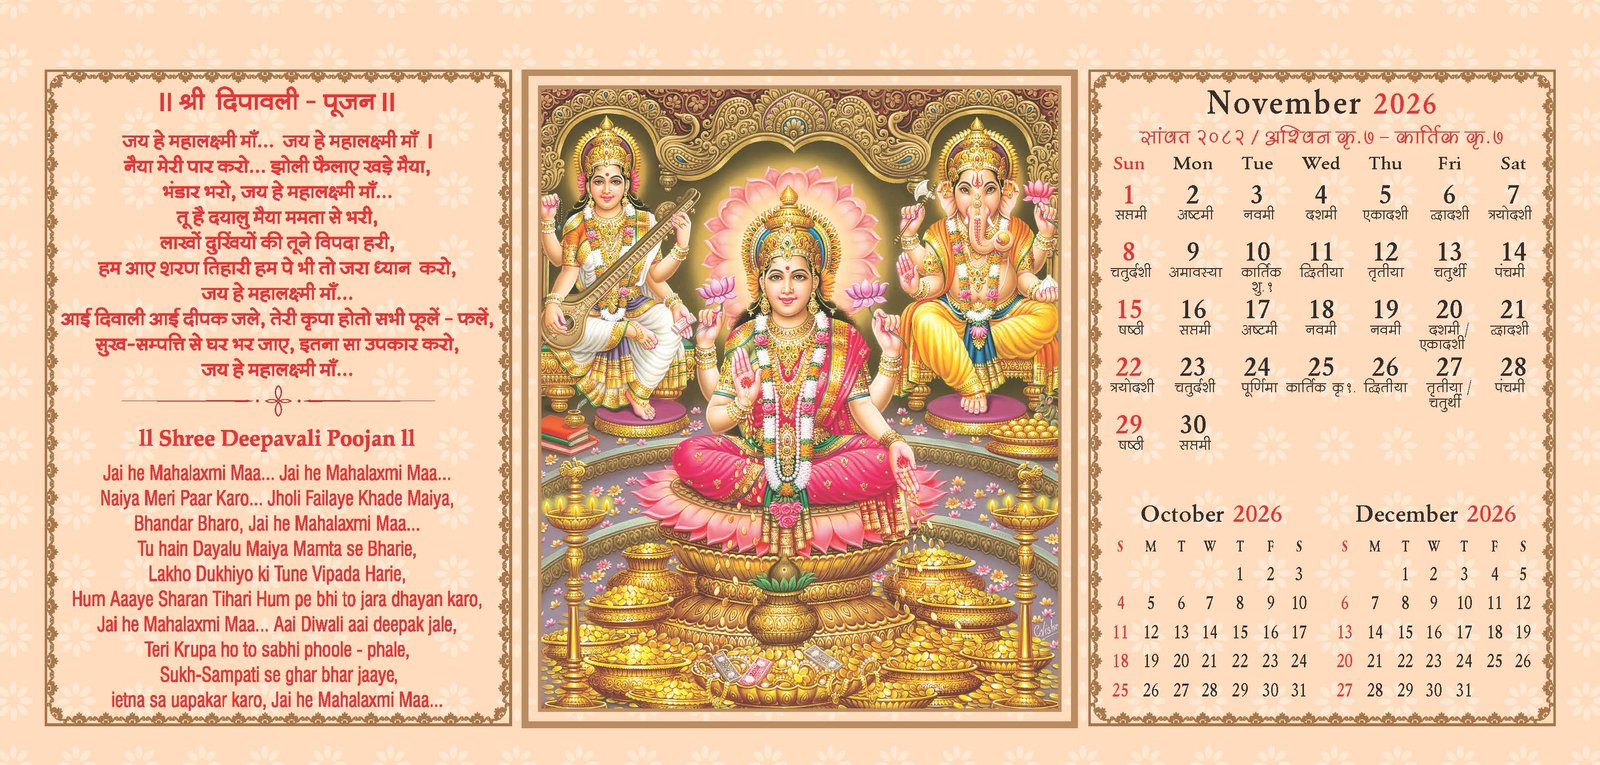 ॥ श्री दिपावली - पूजन ॥
जय हे महालक्ष्मी माँ... जय हे महालक्ष्मी माँ ।
नैया मेरी पार करो... झोली फैलाए खड़े मैया,
भंडार भरो, जय हे महालक्ष्मी माँ...
तू है दयालु मैया ममता से भरी,
लाखों दुखियों की तूने विपदा हरी,
हम आए शरण तिहारी हम पे भी तो जरा ध्यान करो,
जय हे महालक्ष्मी माँ...
आई दिवाली आई दीपक जले, तेरी कृपा होतो सभी फूलें - फलें,
सुख-सम्पत्ति से घर भर जाए, इतना सा उपकार करो,
जय हे महालक्ष्मी माँ...
ll Shree Deepavali Poojan ll
Jai he Mahalaxmi Maa... Jai he Mahalaxmi Maa...
Naiya Meri Paar Karo... Jholi Failaye Khade Maiya,
Bhandar Bharo, Jai he Mahalaxmi Maa...
Tu hain Dayalu Maiya Mamta se Bharie,
Lakho Dukhiyo ki Tune Vipada Harie,
Hum Aaaye Sharan Tihari Hum pe bhi to jara dhayan karo,
Jai he Mahalaxmi Maa... Aai Diwali aai deepak jale,
Teri Krupa ho to sabhi phoole - phale,
Sukh-Sampati se ghar bhar jaaye,
ietna sa uapakar karo, Jai he Mahalaxmi Maa...
November 2026
सांवत २०८२ / अश्विन कृ.७ - कार्तिक कृ.७
Sun Mon Tue Wed Thu Fri Sat
1 2 3 4 5 6 7
सप्तमी अष्टमी नवमी दशमी एकादशी द्वादशी त्रयोदशी
8 9 10 11 12 13 14
चतुर्दशी अमावस्या कार्तिक द्वितीया तृतीया चतुर्थी पंचमी
शु.१
15 16 17 18 19 20 21
षष्ठी सप्तमी अष्टमी नवमी नवमी दशमी / द्वादशी
एकादशी
22 23 24 25 26 27 28
त्रयोदशी चतुर्दशी पूर्णिमा कार्तिक कृ१. द्वितीया तृतीया / पंचमी
चतुर्थी
29 30
षष्ठी सप्तमी
October 2026
S M T W T F S
1 2 3
4 5 6 7 8 9 10
11 12 13 14 15 16 17
18 19 20 21 22 23 24
25 26 27 28 29 30 31
December 2026
S M T W T F S
1 2 3 4 5
6 7 8 9 10 11 12
13 14 15 16 17 18 19
20 21 22 23 24 25 26
27 28 29 30 31